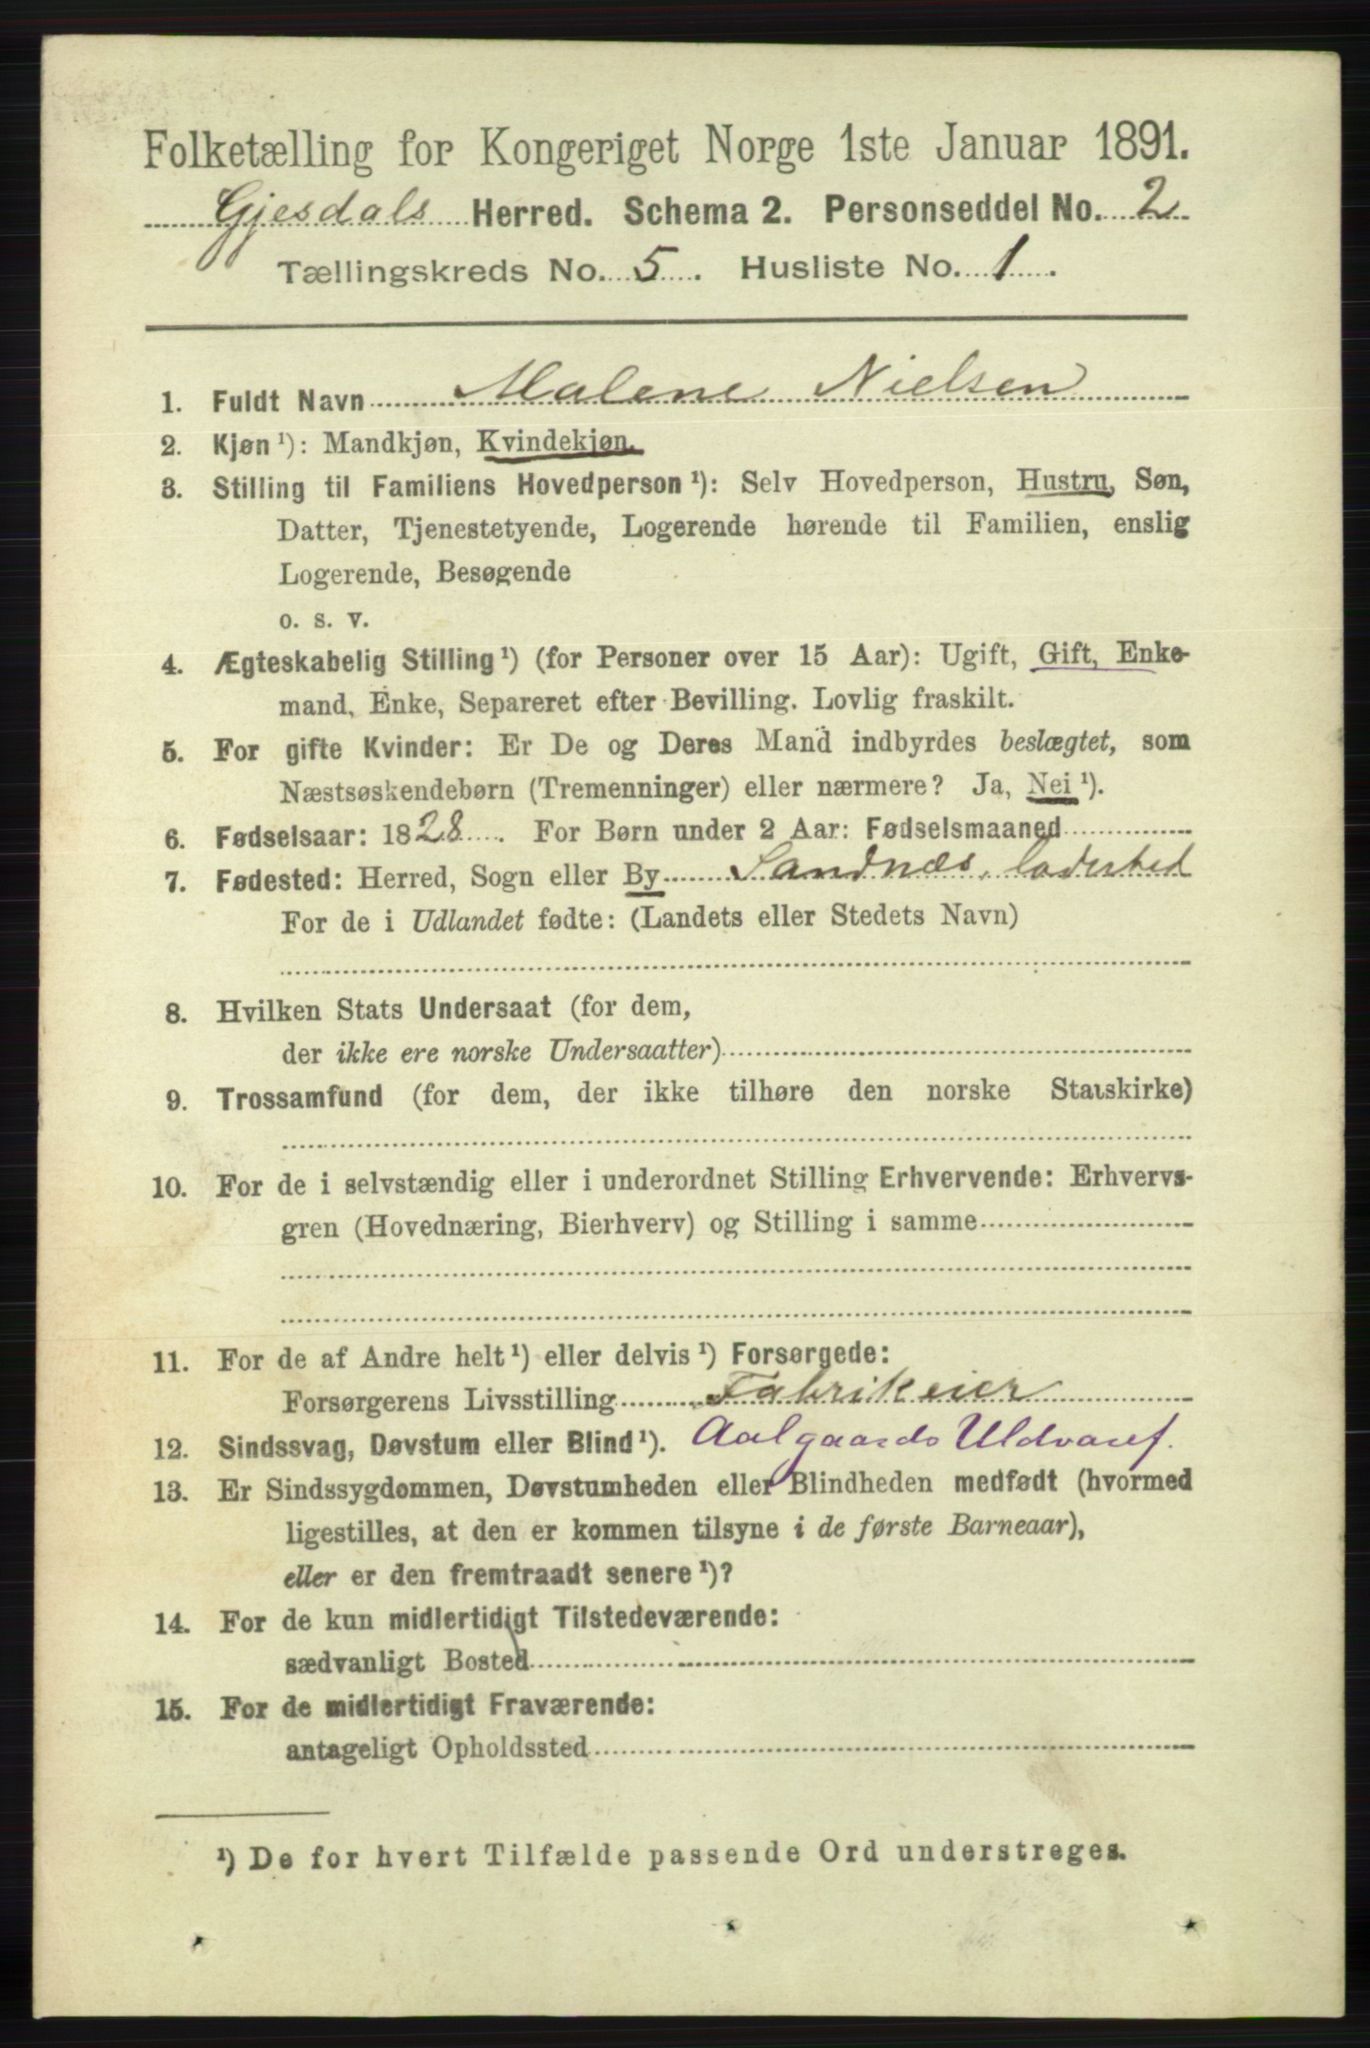 Folketælling for Kongeriget Norge 1ste Januar 1891.
Gjesdals Herred. Schema 2. Personseddel No. 2
Tællingskreds No. 5. Husliste No. 1.
1. Fuldt Navn Malene Nielsen
2. Kjøn ¹): Mandkjøn, Kvindekjøn.
3. Stilling til Familiens Hovedperson ¹): Selv Hovedperson, Hustru, Søn,
Datter, Tjenestetyende, Logerende hørende til Familien, enslig
Logerende, Besøgende
o. s. v.
4. Ægteskabelig Stilling ¹) (for Personer over 15 Aar): Ugift, Gift, Enke-
mand, Enke, Separeret efter Bevilling. Lovlig fraskilt.
5. For gifte Kvinder: Er De og Deres Mand indbyrdes beslægtet, som
Næstsøskendebørn (Tremenninger) eller nærmere? Ja, Nei ¹).
6. Fødselsaar: 1828. For Børn under 2 Aar: Fødselsmaaned
7. Fødested: Herred, Sogn eller By Sandnæs, ladested
For de i Udlandet fødte: (Landets eller Stedets Navn)
8. Hvilken Stats Undersaat (for dem,
der ikke ere norske Undersaatter)
9. Trossamfund (for dem, der ikke tilhøre den norske Statskirke)
10. For de i selvstændig eller i underordnet Stilling Erhvervende: Erhvervs-
gren (Hovednæring, Bierhverv) og Stilling i samme
11. For de af Andre helt ¹) eller delvis ¹) Forsørgede:
Forsørgerens Livsstilling Fabrikeier
12. Sindssvag, Døvstum eller Blind ¹). Aalgaards Uldvaref.
13. Er Sindssygdommen, Døvstumheden eller Blindheden medfødt (hvormed
ligestilles, at den er kommen tilsyne i de første Barneaar),
eller er den fremtraadt senere ¹)?
14. For de kun midlertidigt Tilstedeværende:
sædvanligt Bosted
15. For de midlertidigt Fraværende:
antageligt Opholdssted
¹) De for hvert Tilfælde passende Ord understreges.